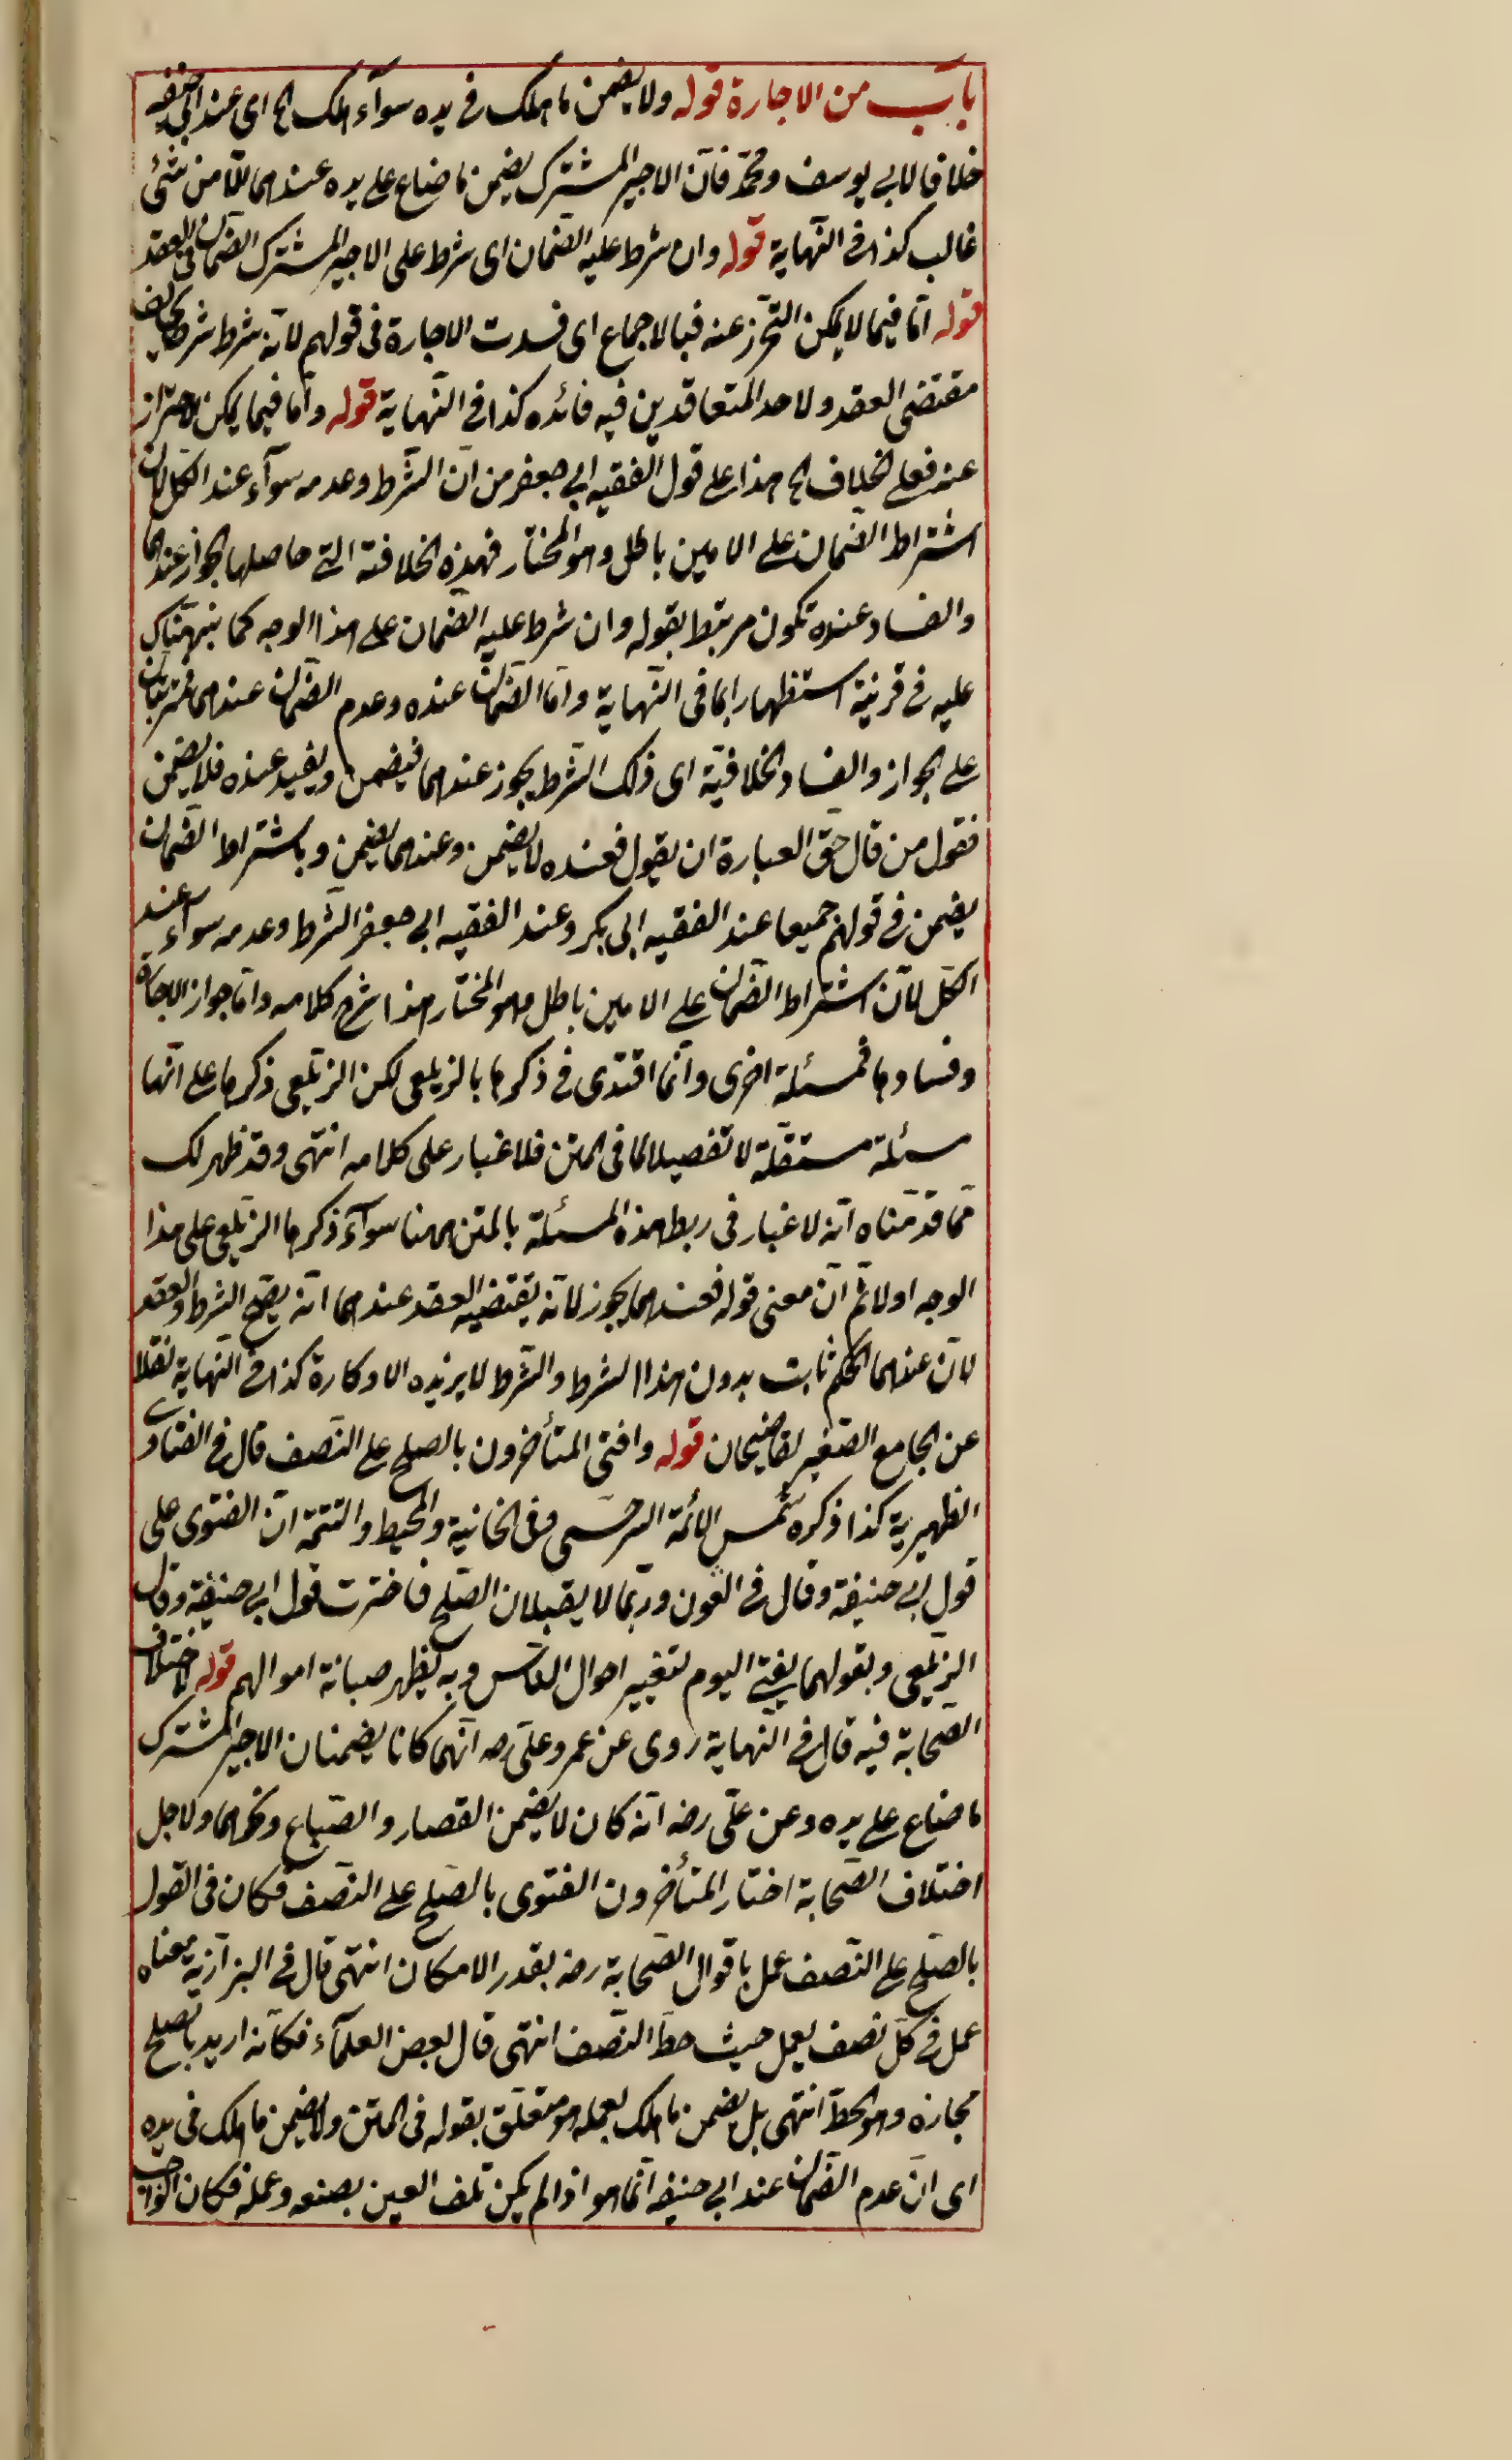 باب من الاجارة قوله ولا يضمن ما هلك فى يده سوآء هلك الخ اى عند ابى حنيفه
خلافا لابى يوسف ومحمد فان الاجير المشترك يضمن ما ضاع على يده عندهما الا من شئ
غالب كذا فى النهاية قوله وان شرط عليه الضمان اى شرط على الاجير المشترك الضمان فى العقد
قوله امّا فيما لا يمكن التحرز عنه فبالاجماع اى فسدت الاجارة فى قولهم لانه شرط شرطا يخالف
مقتضى العقد ولاحد المتعاقدين فيه فائده كذا فى النهاية قوله وامّا فيما يمكن الاحتراز
عنه فعلى الخلاف الخ هذا على قول الفقيه ابى جعفر من ان الشرط وعدمه سوآء عند الكل لان
اشتراط الضمان على الامين باطل وهو المختار فهذه الخلافية التى حاصلها الجواز عندهما
والفساد عنده تكون مرتبط بقوله وان شرط عليه الضمان على هذا الوجه كما نبهناك
عليه فى قرنية استظهارا بما فى النهاية وامّا الضمان عنده وعدم الضمان عندهما فمترتبان
على الجواز والفساد الخلافية اى ذلك الشرط يجوز عندهما فيضمن ويفسد عنده فلا يضمن
فقول من قال حق العبارة ان يقول فعنده لا يضمن وعندهما يضمن وباشتراط الضمان
يضمن فى قولهم جميعا عند الفقيه ابى بكر وعند الفقيه ابى جعفر الشرط وعدمه سوآء عند
الكل لان اشتراط الضمان على الامين باطل وهو المختار هذا شرح كلامه وامّا جواز الاجارة
وفسادها فمسئلة اخرى وانما اقتدى فى ذكرها بالزيلعى لكن الزيلعى ذكرها على انها
مسئلة مستقلة لا تفصيلا لما فى المتن فلا غبار على كلامه انتهى وقد ظهر لك
مما قدمناه انه لا غبار فى ربط هذه المسئلة بالمتن ههنا سوآء ذكرها الزيلعى على هذا
الوجه اولا ثم ان معنى قوله فعندهما يجوز لانه يقتضيه العقد عندهما انه يصح الشرط والعقد
لان عندهما الحكم ثابت بدون هذا الشرط والشرط لا يزيده الا وكارة كذا فى النهاية نقلا
عن الجامع الصغير لقاضيخان قوله وافتى المتأخرون بالصلح على النصف قال فى الفتاوى
الظهيرية كذا ذكره شمس الائمة السرخسى وفى الخانية والمحيط والتتمة ان الفتوى على
قول ابى حنيفة وقال فى العون وربما لا يقبلان الصلح فاخترت قول ابى حنيفة وقال
الزيلعى وبقولهما يفتى اليوم لتغيير احوال الناس وبه يظهر صيانة اموالهم قوله لاختلاف
الصحابة فيه قال فى النهاية روى عن عمر وعلى رضه انهما كانا يضمنان الاجير المشترك
ما ضاع على يده وعن على رضه انه كان لا يضمن القصار والصباغ ونحوهما ولاجل
اختلاف الصحابة اختار المتأخرون الفتوى بالصلح على النصف فكان فى القول
بالصلح على النصف عمل باقوال الصحابة رضه بقدر الامكان انتهى قال فى البزازية معناه
عمل فى كل نصف بعمل حيث حط النصف انتهى قال بعض العلمآء فكانه اريد بالصلح
مجازه وهو الحط انتهى بل يضمن ما هلك بعمله هو متعلق بقوله فى المتن ولا يضمن ما هلك فى يده
اى ان عدم الضمان عند ابى حنيفه انما هو اذا لم يكن تلف العين بصنعه وعمله فكان الواجب